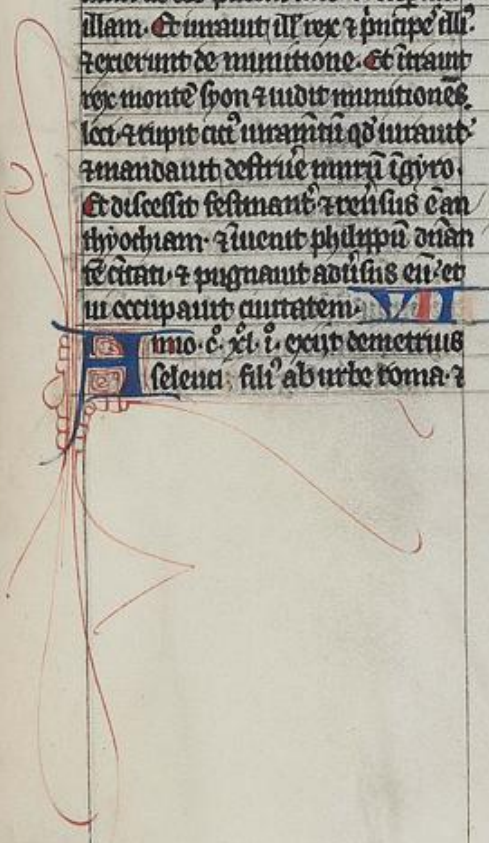 illam. Et iurauit ill' rex ⁊ p̾ncipe' illi.
⁊ exierunt de munitione. Et it̾uit
rex monte̅ syon ⁊ uidit munitiones
loci ⁊ rupit cici' iuram̅tu̅ qd' iurauit.
⁊ mandauit destrue̾ muru̅ i̅ gyro.
Et discessit festinant̾ ⁊ reu̾sus e̅ an
thyochiam. ⁊ i̅uenit philippu̅ d̅nan
te̅ ciuitati. ⁊ pugnauit adu̾sus eu̅. et
ui occupauit ciuitatem. VII
Anno. c̊. xl. i̊. exiit demetrius
seleuci fili' ab urbe roma. ⁊